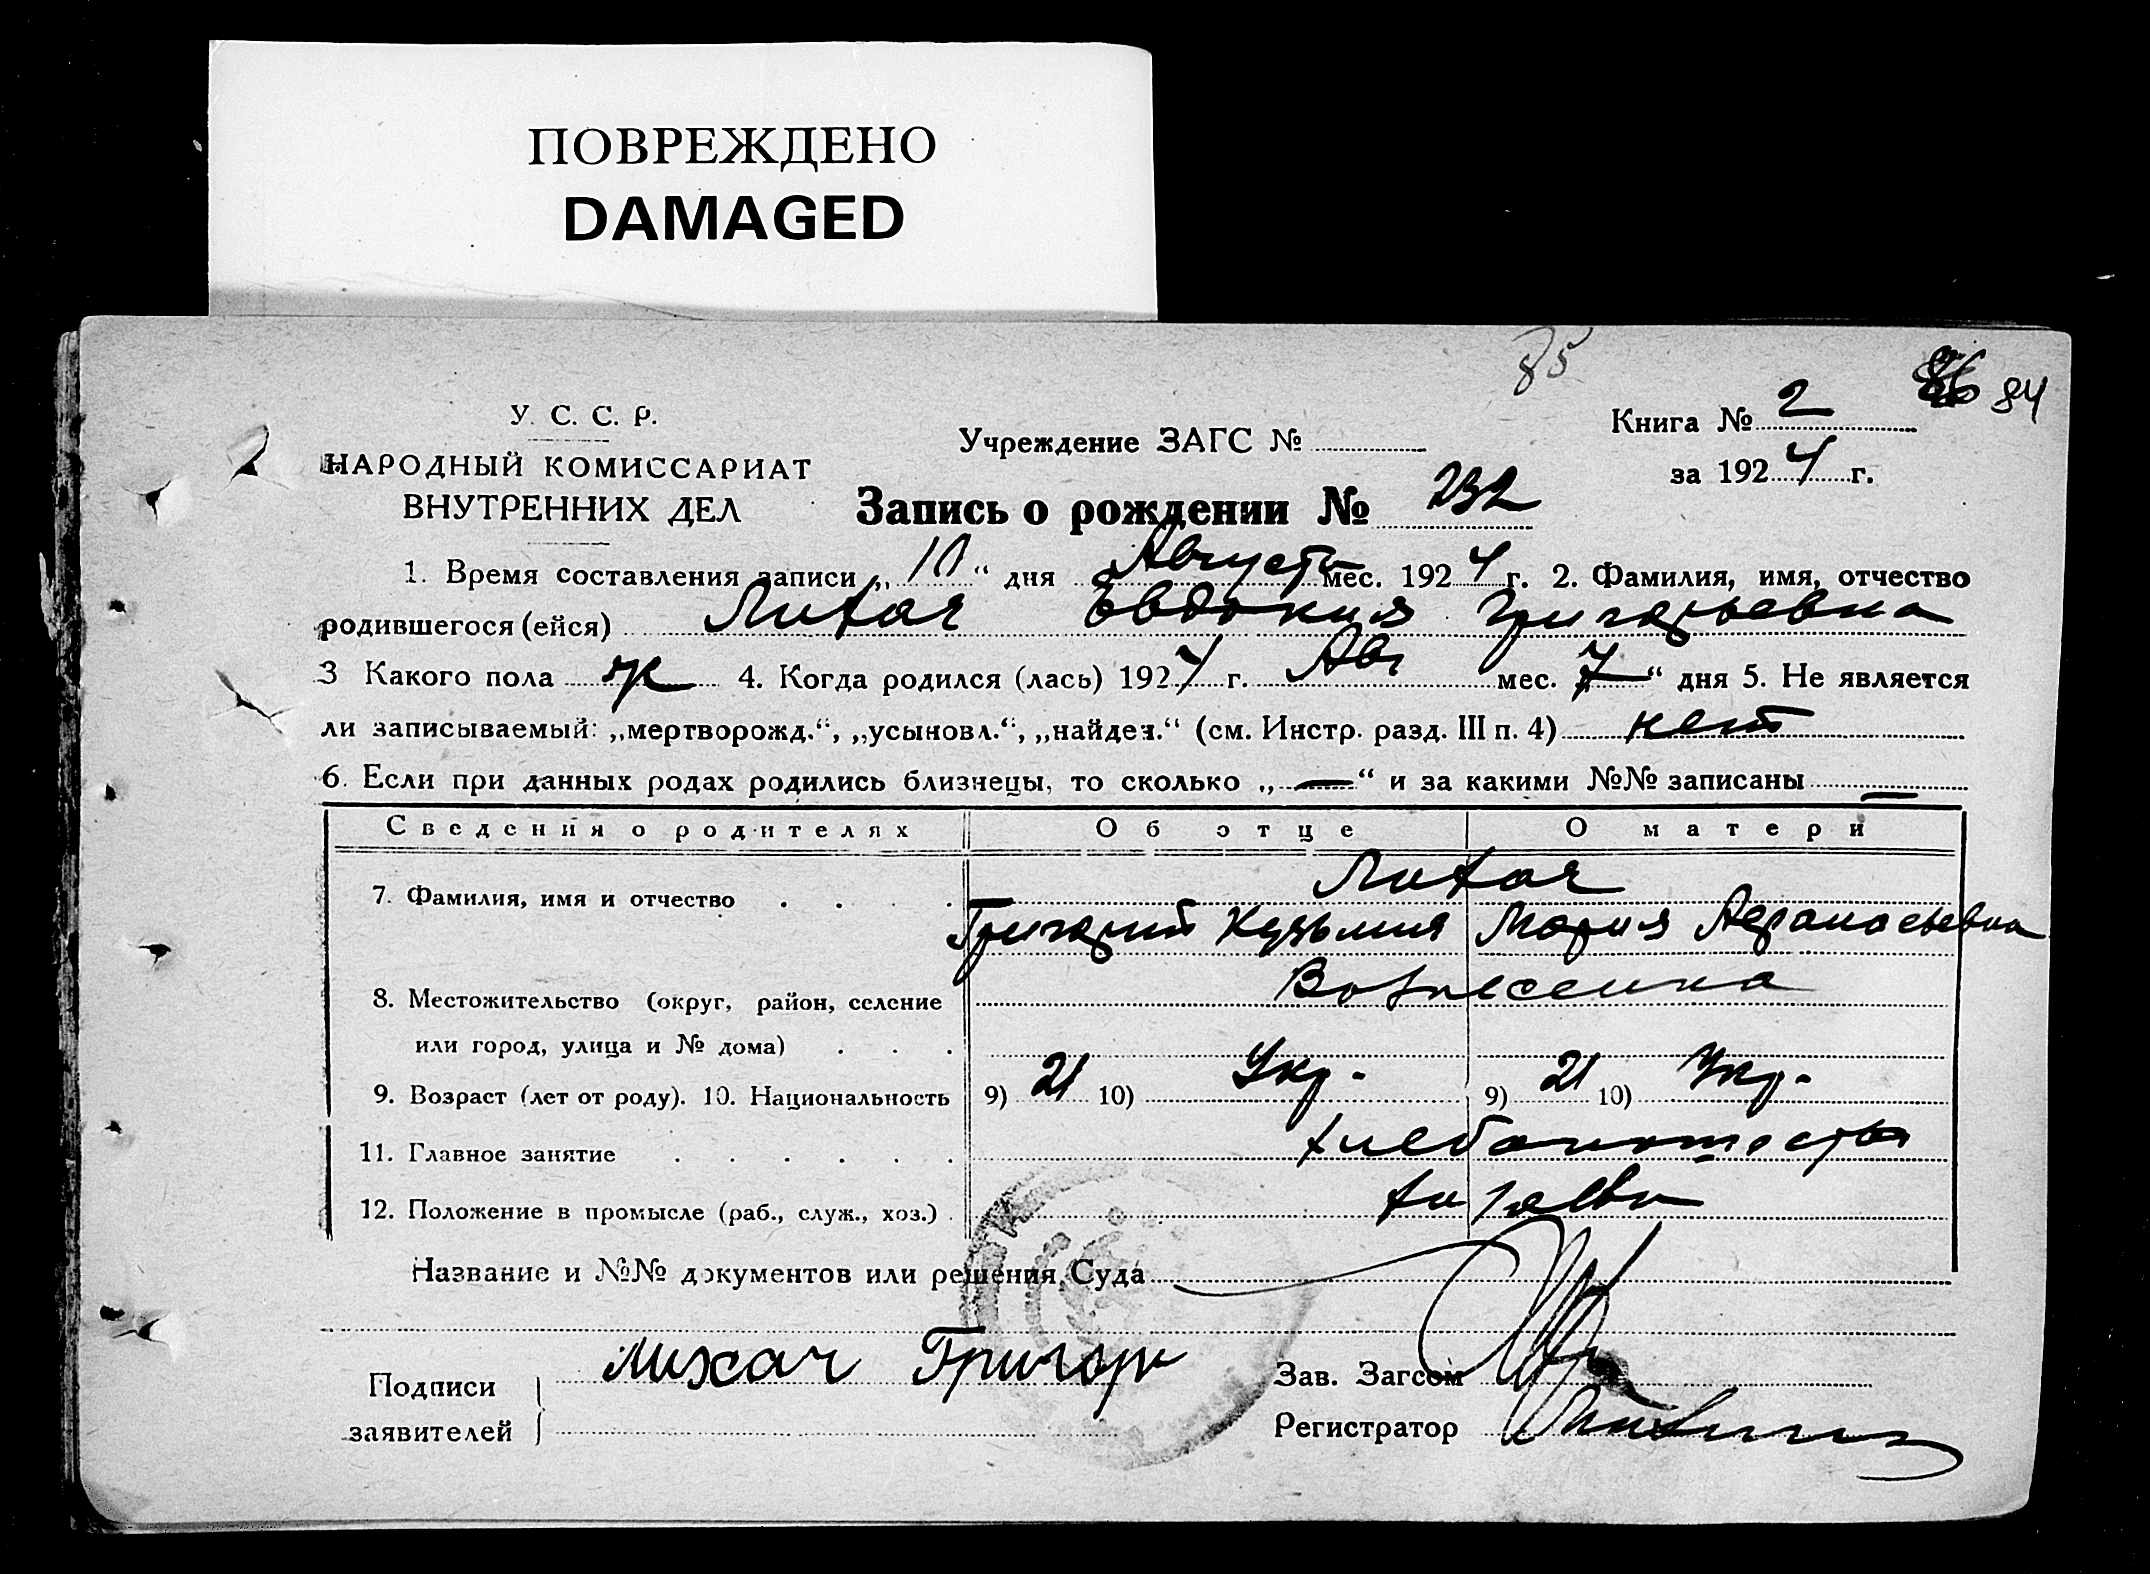 ПОВРЕЖДЕНО
DAMAGED
85
86 84
У. С. С. Р.
НАРОДНЫЙ КОМИССАРИАТ
ВНУТРЕННИХ ДЕЛ
Учреждение ЗАГС №
Книга № 2
за 1924 г.
Запись о рождении № 232
1. Время составления записи „10“ дня Августа мес. 1924 г. 2. Фамилия, имя, отчество
родившегося (ейся) Лихач Евдокия Григорьевна
3 Какого пола ж 4. Когда родился (лась) 1924 г. Авг мес. 7“ дня 5. Не является
ли записываемый: „мертворожд.“, „усыновл.“, „найден.“ (см. Инстр. разд. III п. 4) нет
6. Если при данных родах родились близнецы, то сколько „—“ и за какими №№ записаны —
Сведения о родителях Об отце О матери
7. Фамилия, имя и отчество Лихач
Григорий Кузьмич Мария Афанасьевна
8. Местожительство (округ, район, селение Вознесенка
или город, улица и № дома)
9. Возраст (лет от роду). 10. Национальность 9) 21 10) Укр. 9) 21 10) Укр.
11. Главное занятие хлебопашество
12. Положение в промысле (раб., служ., хоз.) хозяева
Название и №№ документов или решения Суда
Подписи заявителей Лихач Григор
Зав. Загсом
Регистратор